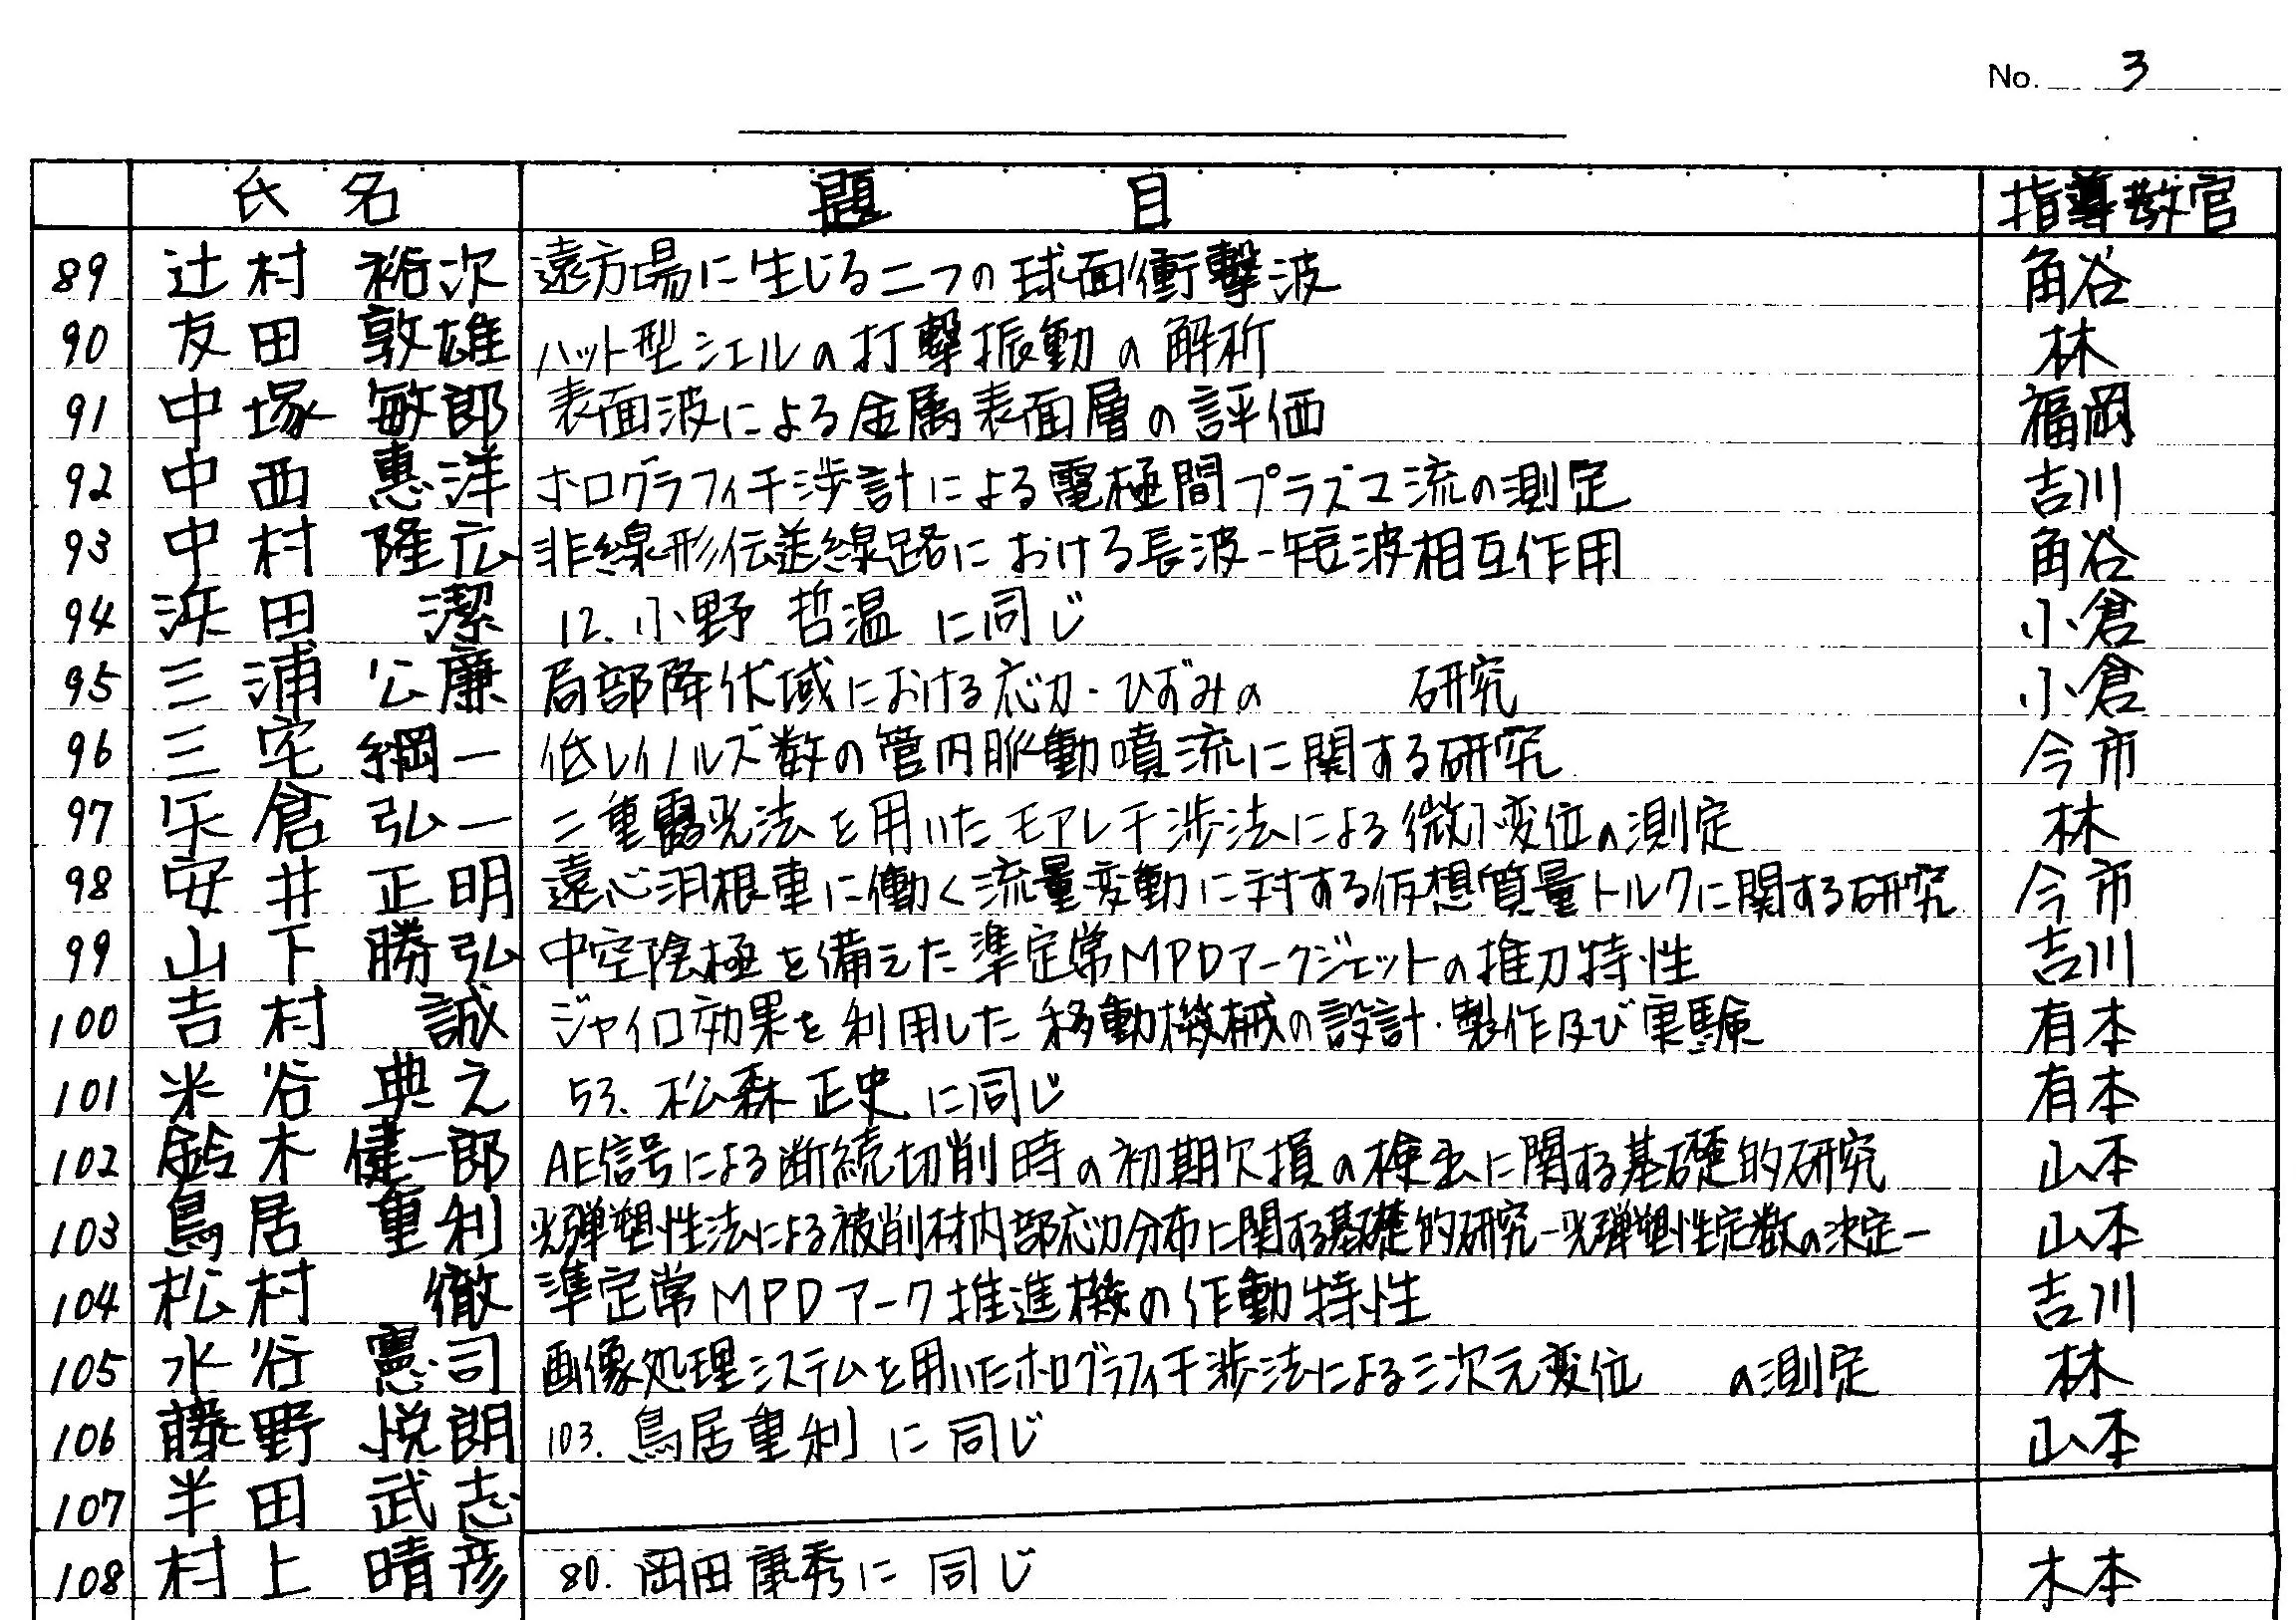 No. 3
氏名 題目 指導教官
89 辻村 裕次 遠方場に生じる二つの球面衝撃波 角谷
90 友田 敦雄 ハット型シェルの打撃振動の解析 林
91 中塚 敏郎 表面波による金属表面層の評価 福岡
92 中西 惠洋 ホログラフィ干渉計による電極間プラズマ流の測定 吉川
93 中村 隆広 非線形伝送線路における長波-短波相互作用 角谷
94 浜田 潔 12. 小野 哲温 に同じ 小倉
95 三浦 公廉 局部降伏域における応力・ひずみの 研究 小倉
96 三宅 綱一 低レイノルズ数の管内脈動噴流に関する研究 今市
97 矢倉 弘一 二重露光法を用いたモアレ干渉法による微小変位の測定 林
98 安井 正明 遠心羽根車に働く流量変動に対する仮想質量トルクに関する研究 今市
99 山下 勝弘 中空陰極を備えた準定常MPDアークジェットの推力特性 吉川
100 吉村 誠 ジャイロ効果を利用した移動機械の設計・製作及び実験 有本
101 米谷 典之 53. 松森 正史 に同じ 有本
102 鈴木 健一郎 AE信号による断続切削時の初期欠損の検出に関する基礎的研究 山本
103 鳥居 重利 光弾塑性法による被削材内部応力分布に関する基礎的研究-光弾塑性定数の決定- 山本
104 松村 徹 準定常MPDアーク推進機の作動特性 吉川
105 水谷 憲司 画像処理システムを用いたホログラフィ干渉法による三次元変位 の測定 林
106 藤野 悦朗 103. 鳥居重利 に同じ 山本
107 半田 武志
108 村上 晴彦 80. 岡田康秀に同じ 木本